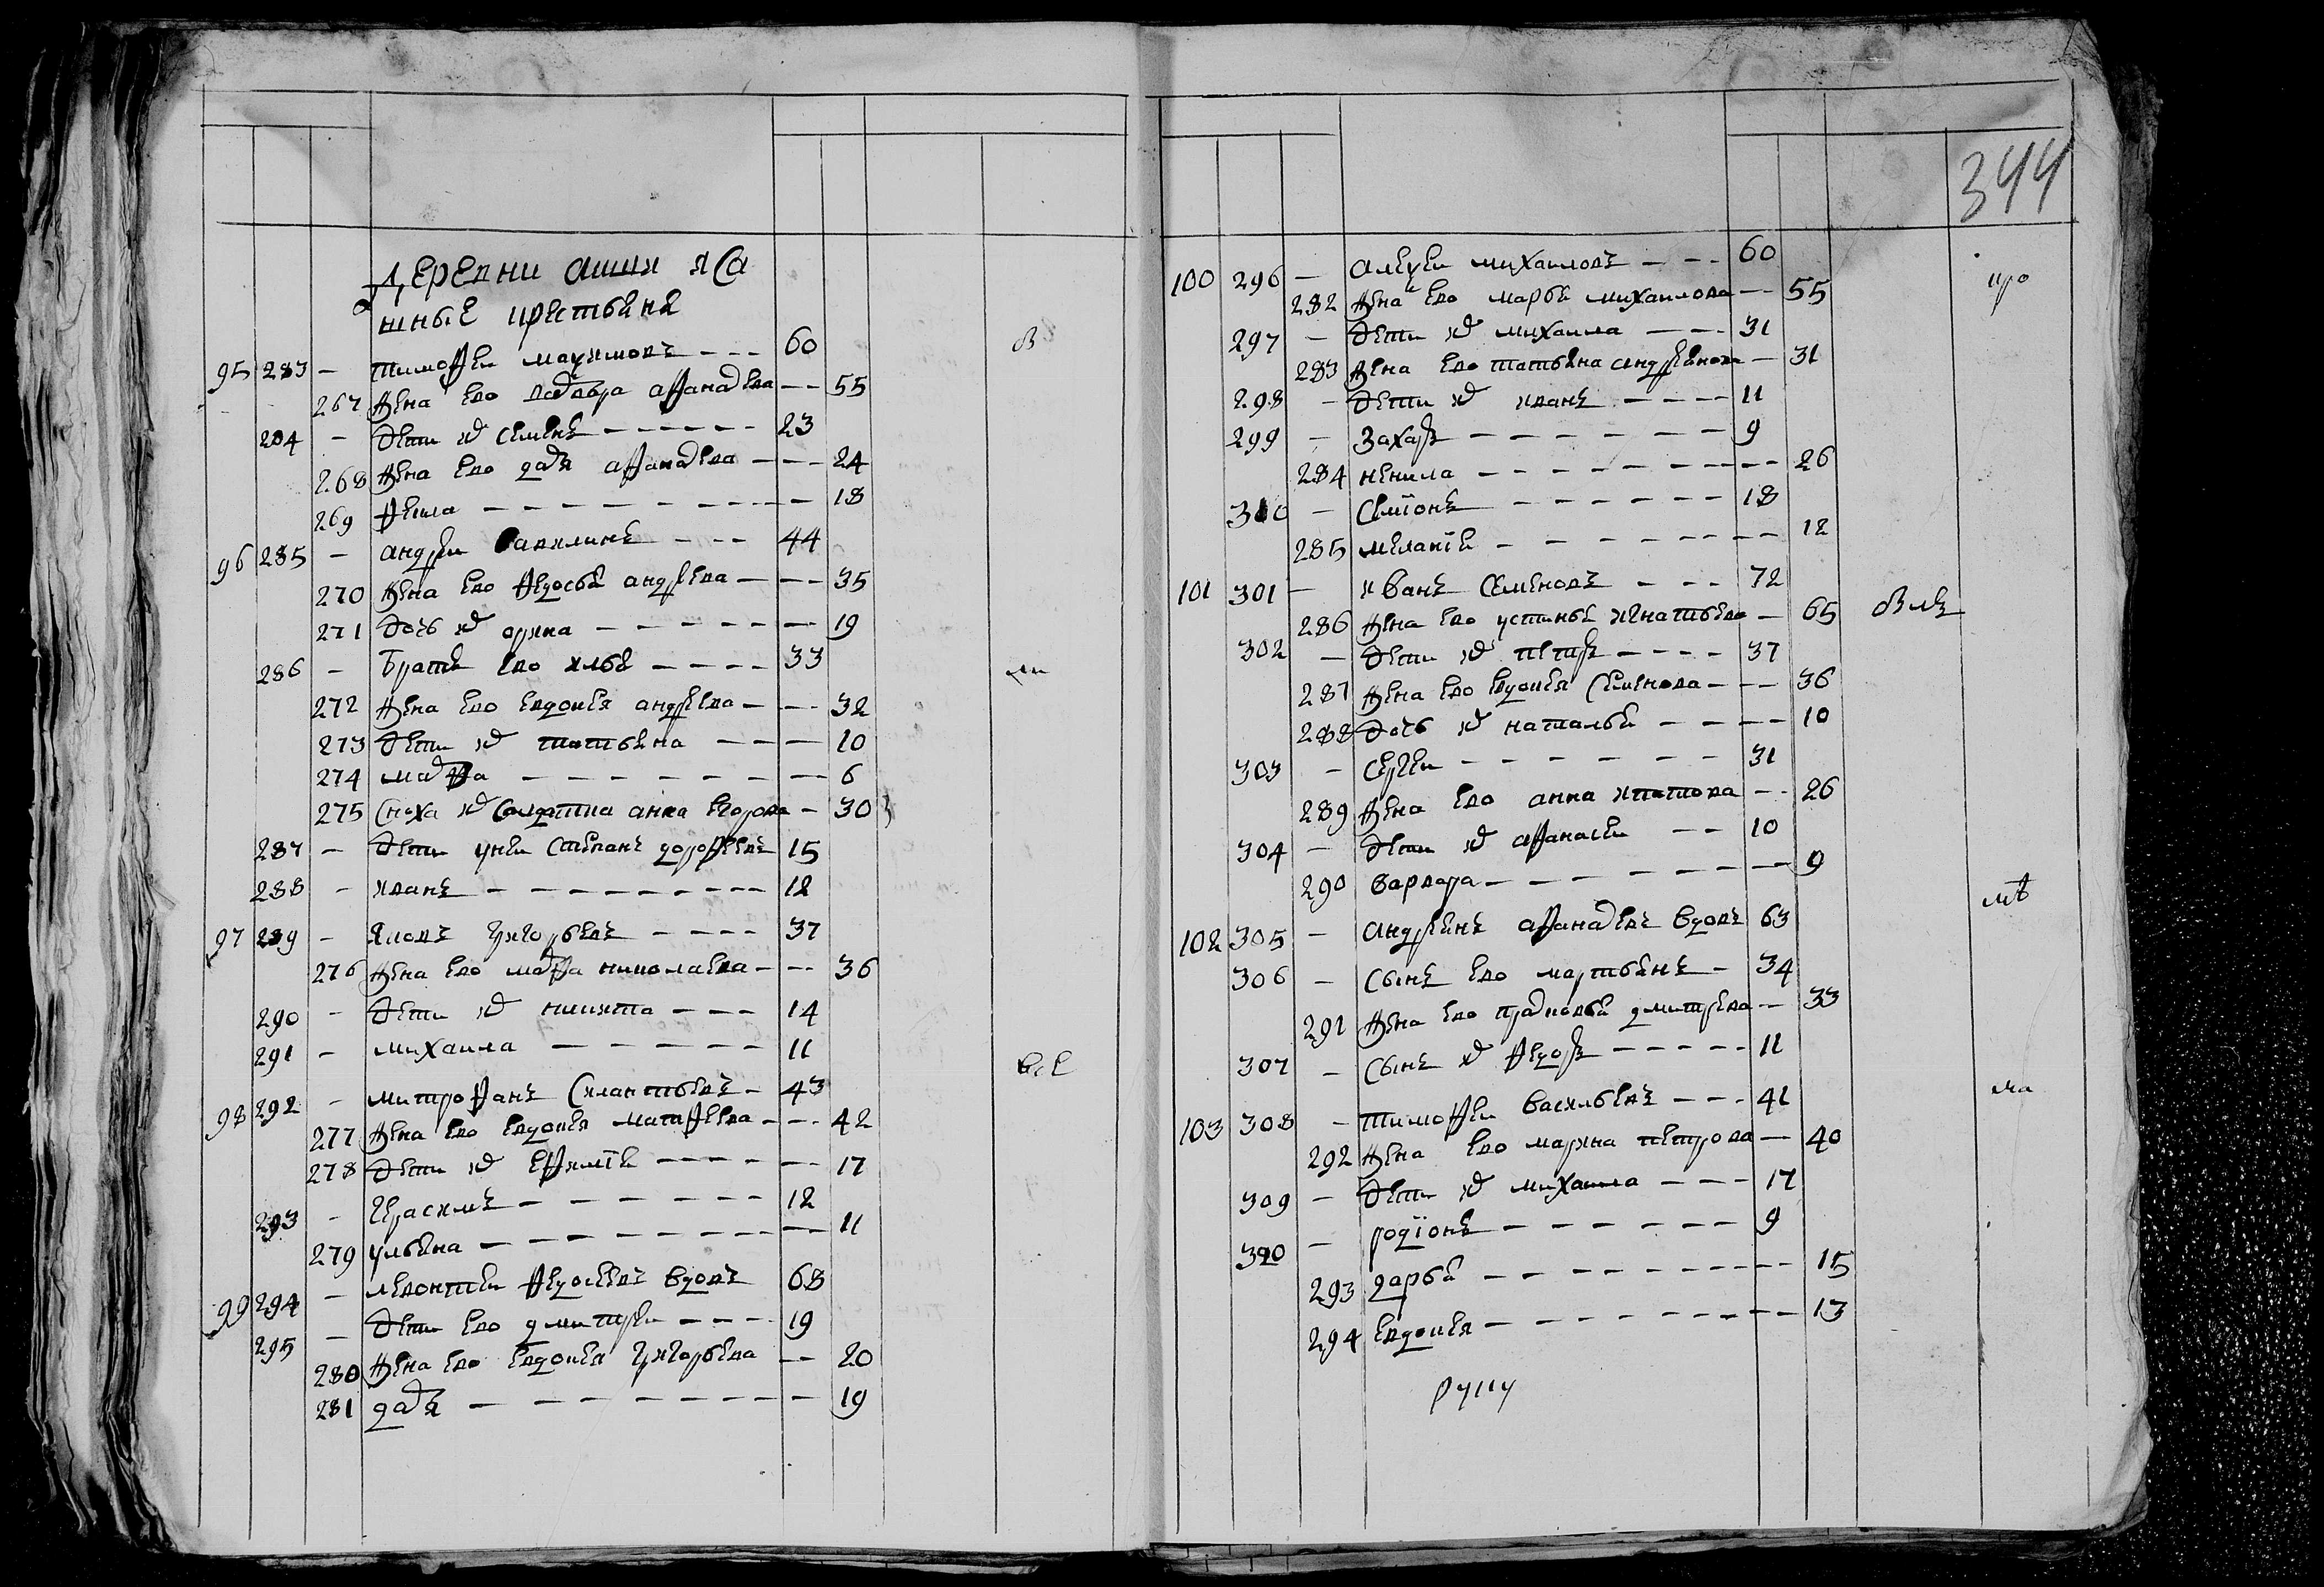 344
деревни ашли яса
шные крестьяне
95 283 – тимофеи максимовъ – – – 60
267 жена ево варвара афанасева – – 55
284 – дети их семенъ – – – – – – 23
268 жена ево дарья афанасева – – – 24
269 фекла – – – – – – – – – – 18
96 285 – андреи савелинъ – – – 44
270 жена ево федосья андреева – – – 35
271 дочь их орина – – – – – – – 19
286 – братъ ево илья – – – – 33
272 жена ево евдокия андреева – – – 32
273 дети их татьяна – – – 10
274 марфа – – – – – – – – 6
275 сноха их салдатка анна егорова – 30
287 – дети у неи степанъ дорофеевъ 15
288 – иванъ – – – – – – – – – 12
97 289 – яковъ григорьевъ – – – – 37
276 жена ево марфа николаева – – – 36
290 – дети их никита – – – 14
291 – михаила – – – – – – 11
98 292 – митрофанъ силантьевъ – 43
277 жена ево евдокия матфеева – – – 42
278 дети их ефимия – – – – – 17
293 – герасимъ – – – – – – – 12
279 ульяна – – – – – – – – – 11
99 294 – левонтеи федосеевъ вдовъ 68
295 – дети ево дмитреи – – – – 19
280 жена ево евдокия григорьева – – 20
281 дарья – – – – – – – – – 19
100 296 – алексеи михаиловъ – – – 60
282 жена ево марья михаилова – – 55
297 – дети их михаила – – – 31
283 жена ево татьяна андреянова – 31
298 – дети их иванъ – – – – 11
299 – захаръ – – – – – – – 9
284 ненила – – – – – – – – – 26
300 – семионъ – – – – – – 18
285 мелания – – – – – – – – 12
101 301 – иванъ семеновъ – – – 72
286 жена ево устинья игнатьева – 65
302 – дети их петръ – – – – 37
287 жена ево евдокия семенова – – – 36
288 дочь их наталья – – – – – 10
303 – сергеи – – – – – – – 31
289 жена ево анна ипатова – – 26
304 – дети их афанасеи – – 10
290 варвара – – – – – – – – 9
102 305 – андреянъ афанасевъ вдовъ 63
306 – сынъ ево мартьянъ – 34
291 жена ево прасковья дмитрева – 33
307 – сынъ их федоръ – – – – – 11
103 308 – тимофеи васильевъ – – – 41
292 жена ево марина петрова – 40
309 – дети их михаила – – – 17
310 – родионъ – – – – – – – 9
293 дарья – – – – – – – – – 15
294 евдокия – – – – – – – – – 13
руку